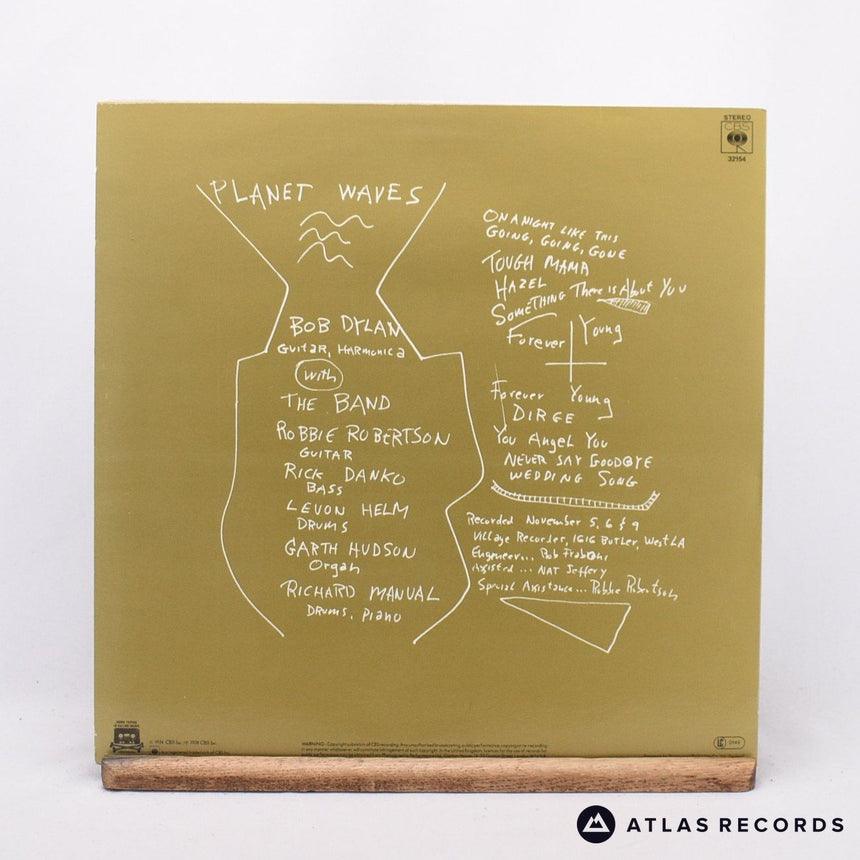 STEREO
CBS
32154
PLANET WAVES
BOB DYLAN
GUITAR, HARMONICA
with
THE BAND
ROBBIE ROBERTSON
GUITAR
RICK DANKO
BASS
LEVON HELM
DRUMS
GARTH HUDSON
Organ
RICHARD MANUAL
DRUMS, PIANO
ON A NIGHT LIKE THIS
GOING, GOING, GONE
TOUGH MAMA
HAZEL
SOMETHING There is About You
Forever Young
Forever Young
DIRGE
You Angel You
NEVER SAY GOODBYE
WEDDING SONG
Recorded November 5, 6 & 9
Village Recorder, 1616 BUTLER, West LA
Engineer... Rob Fraboni
Assisted... NAT Jeffery
Special Assistance... Robbie Robertson
HOME TAPING
IS KILLING MUSIC
LC
ATLAS RECORDS